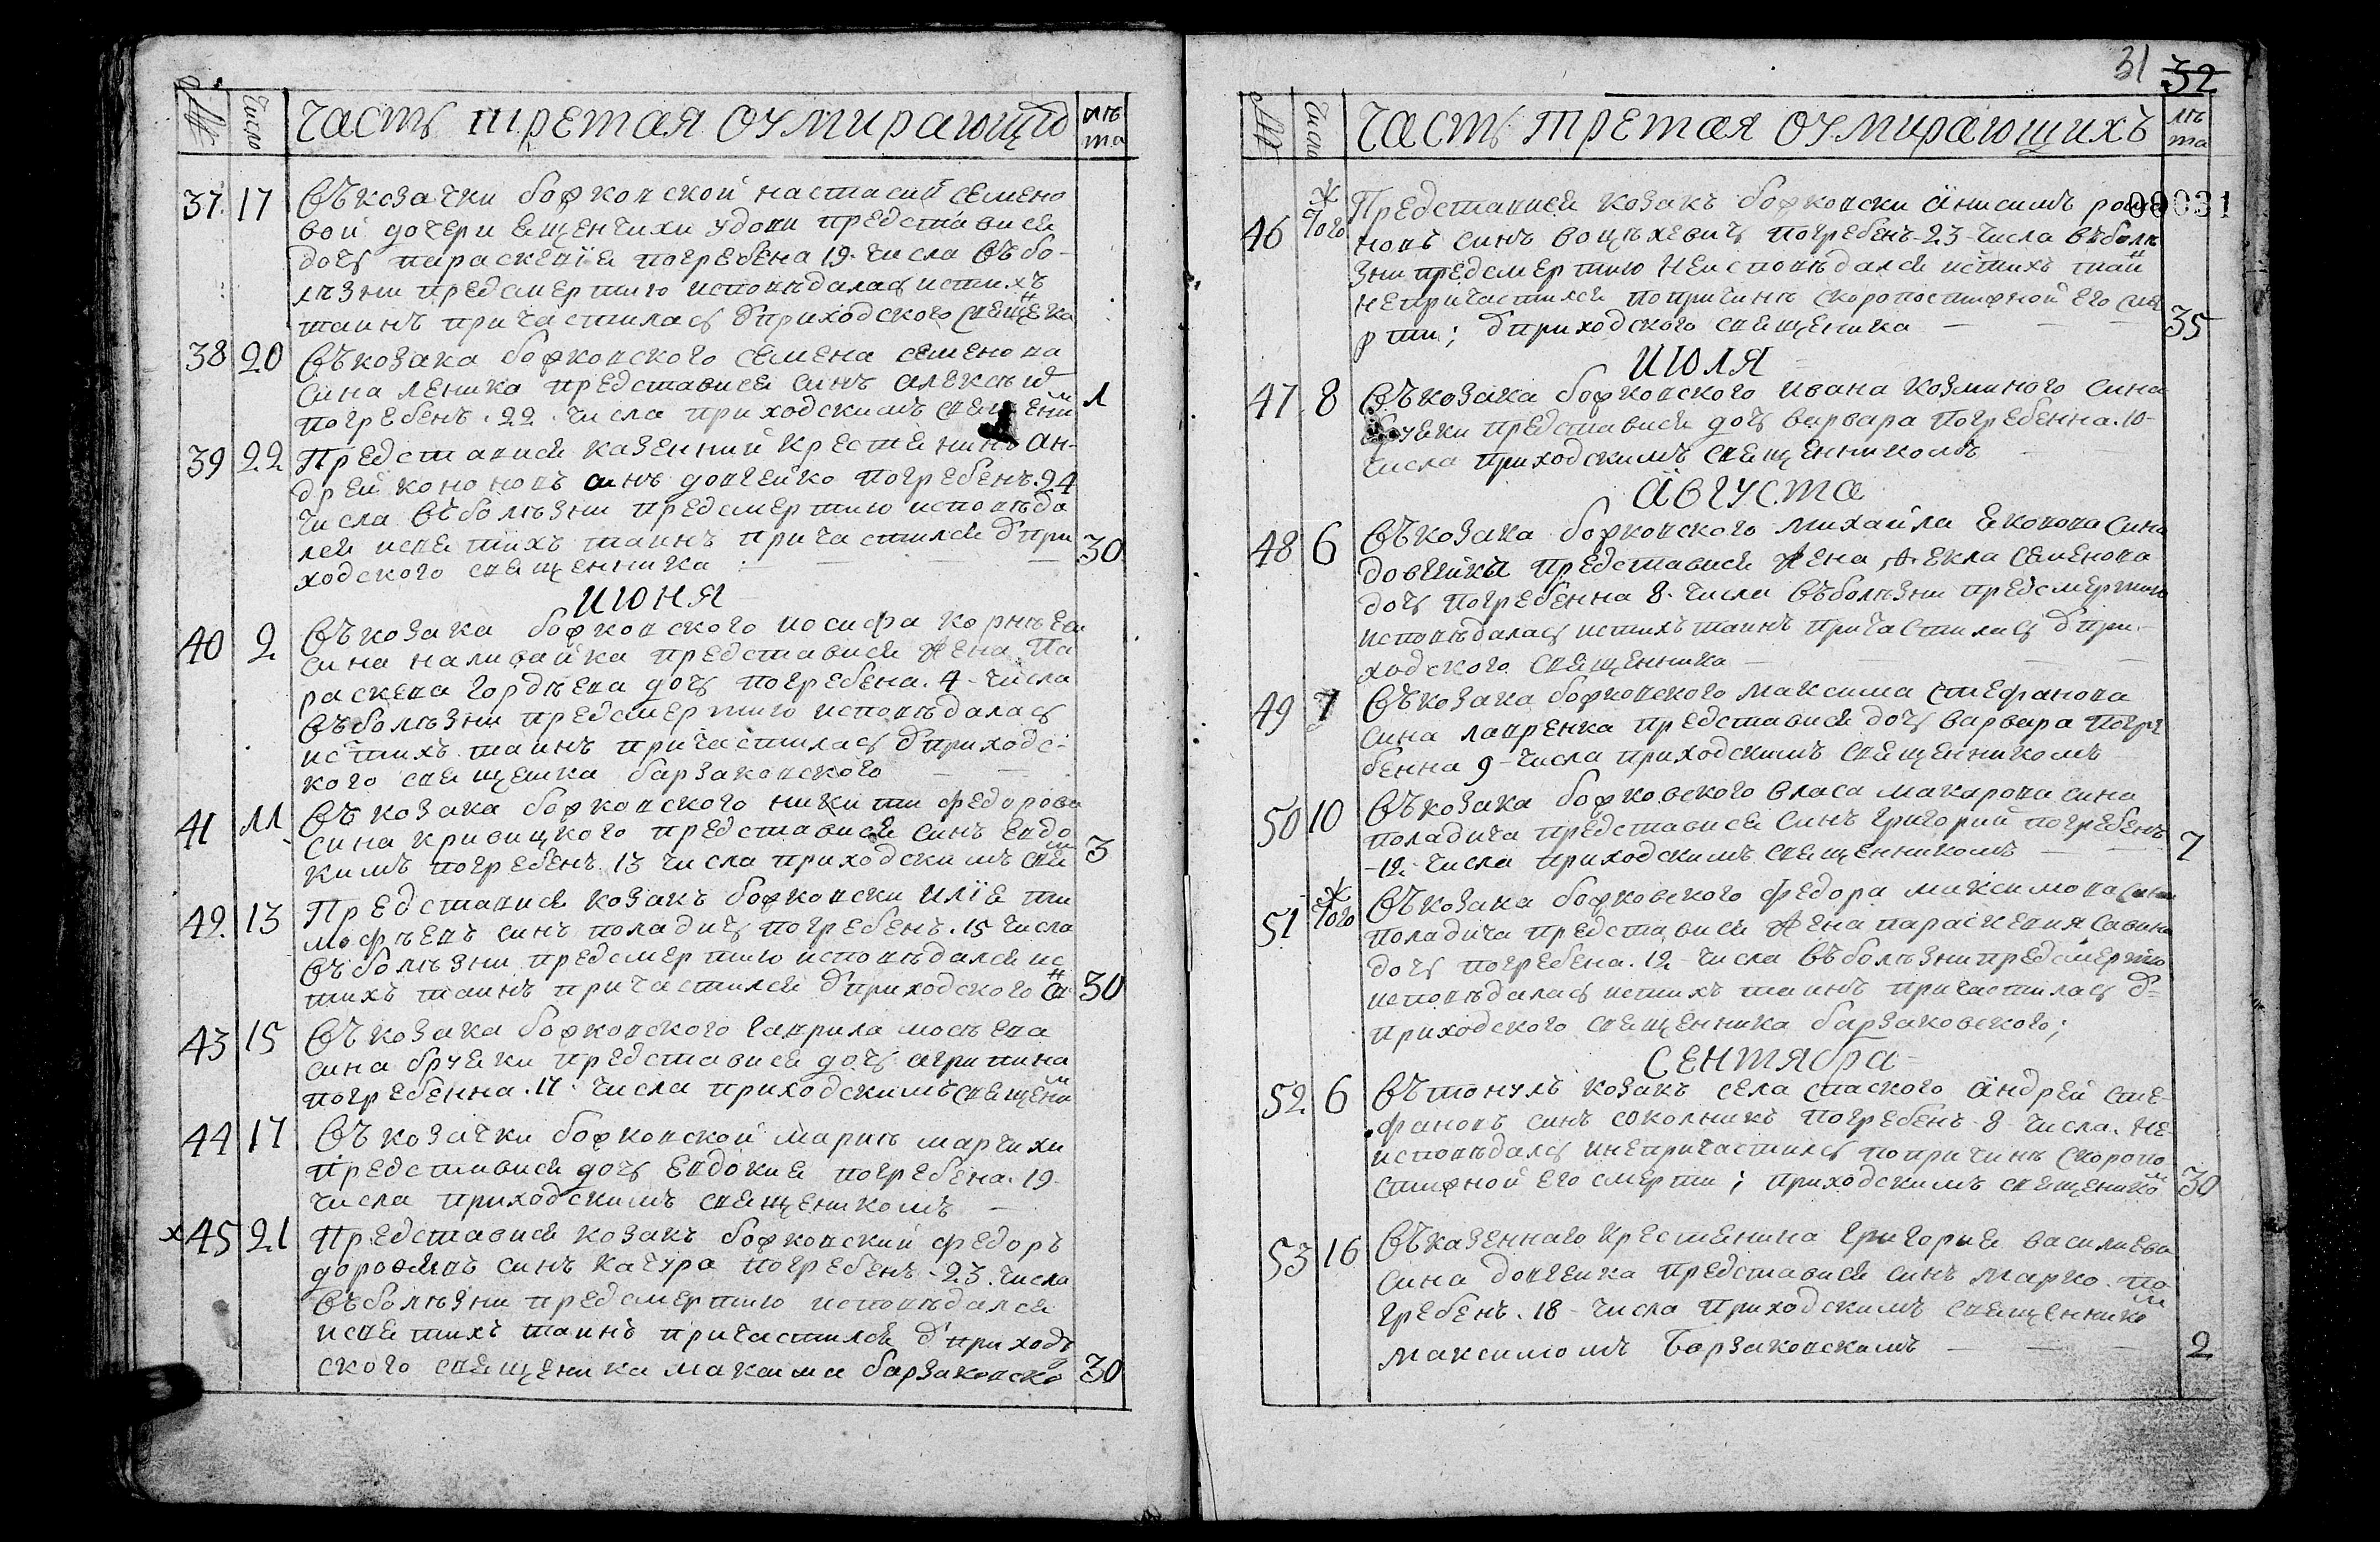 № Число Часть третая оумирающих лѣта
37. 17 Въ козачки божковской настасий семено
вой дочери ященчихи удови представися
дочъ параскевія погребена 19. числа въ бо-
лѣзни предсмертию исповѣдалась истихъ
таинъ причастилась ѿ приходского священка
38 20 Въ козака божковского семена семенова
сина леника представися синъ алексѣй 1
погребенъ. 22. числа приходскимъ священи
39 22 Представися казенний крестянинъ ан-
дрей кононовъ синъ довгейко погребенъ. 24
числа въ болѣзни предсмертию исповѣда
лся исвятихъ таинъ причастился ѿ при 30
ходского священника
июня
40 2 Въ козака божковского иосифа корнѣева
сина наливайка представися жена па
раскева гордѣева дочъ погребена. 4-числа
въ болѣзни предсмертию исповѣдалась
истихъ таинъ причастилась ѿ приходс-
кого священика барзаковского
41 11 Въ козака божковского никити федорова
сина кривицкого представися синъ евдо
кимъ погребенъ 13 числа приходскимъ свя 3
42. 13 Представися козакъ божковски илія ти
мофѣевъ синъ поладичъ погребенъ. 15 числа
въ болѣзни предсмертию исповѣдался ис
тихъ таинъ причастился ѿ приходского св 30
43 15 Въ козака божковского гаврила мосѣева
сина бруяки представися дочъ агрипина
погребенна. 17. числа приходскимъ священи
44 17 Въ козачки божковской марии марчихи
представися дочъ евдокия погребена. 19-
числа приходскимъ священикомъ
х45 21 Представися козакъ божковский федоръ
дорофѣевъ синъ качура погребенъ-23. числа
въ болѣзни предсмертию исповѣдался
исвятихъ таинъ причастился ѿ приход
ского священика максима барзаковско 30
31 32
№ Число Часть третая оумирающихъ лѣта
00031
46 Тогож Представися козакъ божковски анисимъ рома
новъ синъ воцѣхевичъ погребенъ-23-числа въ болѣ
зни предсмертию неисповѣдался истихъ таин
непричастился попричинѣ скоропостижной его сме
рти; ѿ приходского священика 35
июля
47 8 Въ козака божковского ивана козминого сина
бруяки представися дочъ варвара погребенна. 10-
числа приходскимъ священникомъ
августа
48 6 Въ козака божковского михайла якопова сина
довгийки представися жена фекла семенова
дочъ погребенна 8. числа въ болѣзни предсмертию
исповѣдалась истихъ таинъ причастилась ѿ при-
ходского священника
49 7 Въ козака божковского максима стефанова
сина лавренка представися дочъ варвара погре
бенна 9-числа приходскимъ священникомъ
50 10 Въ козака божковского власа макарова сина
поладича представися синъ григорий погребенъ
-12-числа приходскимъ священникомъ 7
51 Тогож Въ козака божковского федора максимова сина
поладича представися жена параскевия савина
дочъ погребена. 12-числа въ болѣзни предсмертию
исповѣдалась истихъ таинъ причастилась ѿ-
приходского священника барзаковского;
сентября
52 6 Втонулъ козакъ села спаского андрей сте-
фановъ синъ соколникъ погребенъ-8-числа. не-
исповѣдалсъ инепричастилсъ попричинѣ скоропо
стижной его смерти; приходскимъ священико 30
53 16 Въ казенного крестянина григория василиева
сина довгейка представися синъ марко. по
гребенъ. 18-числа приходскимъ священнико
максимомъ Борзаковскимъ 2